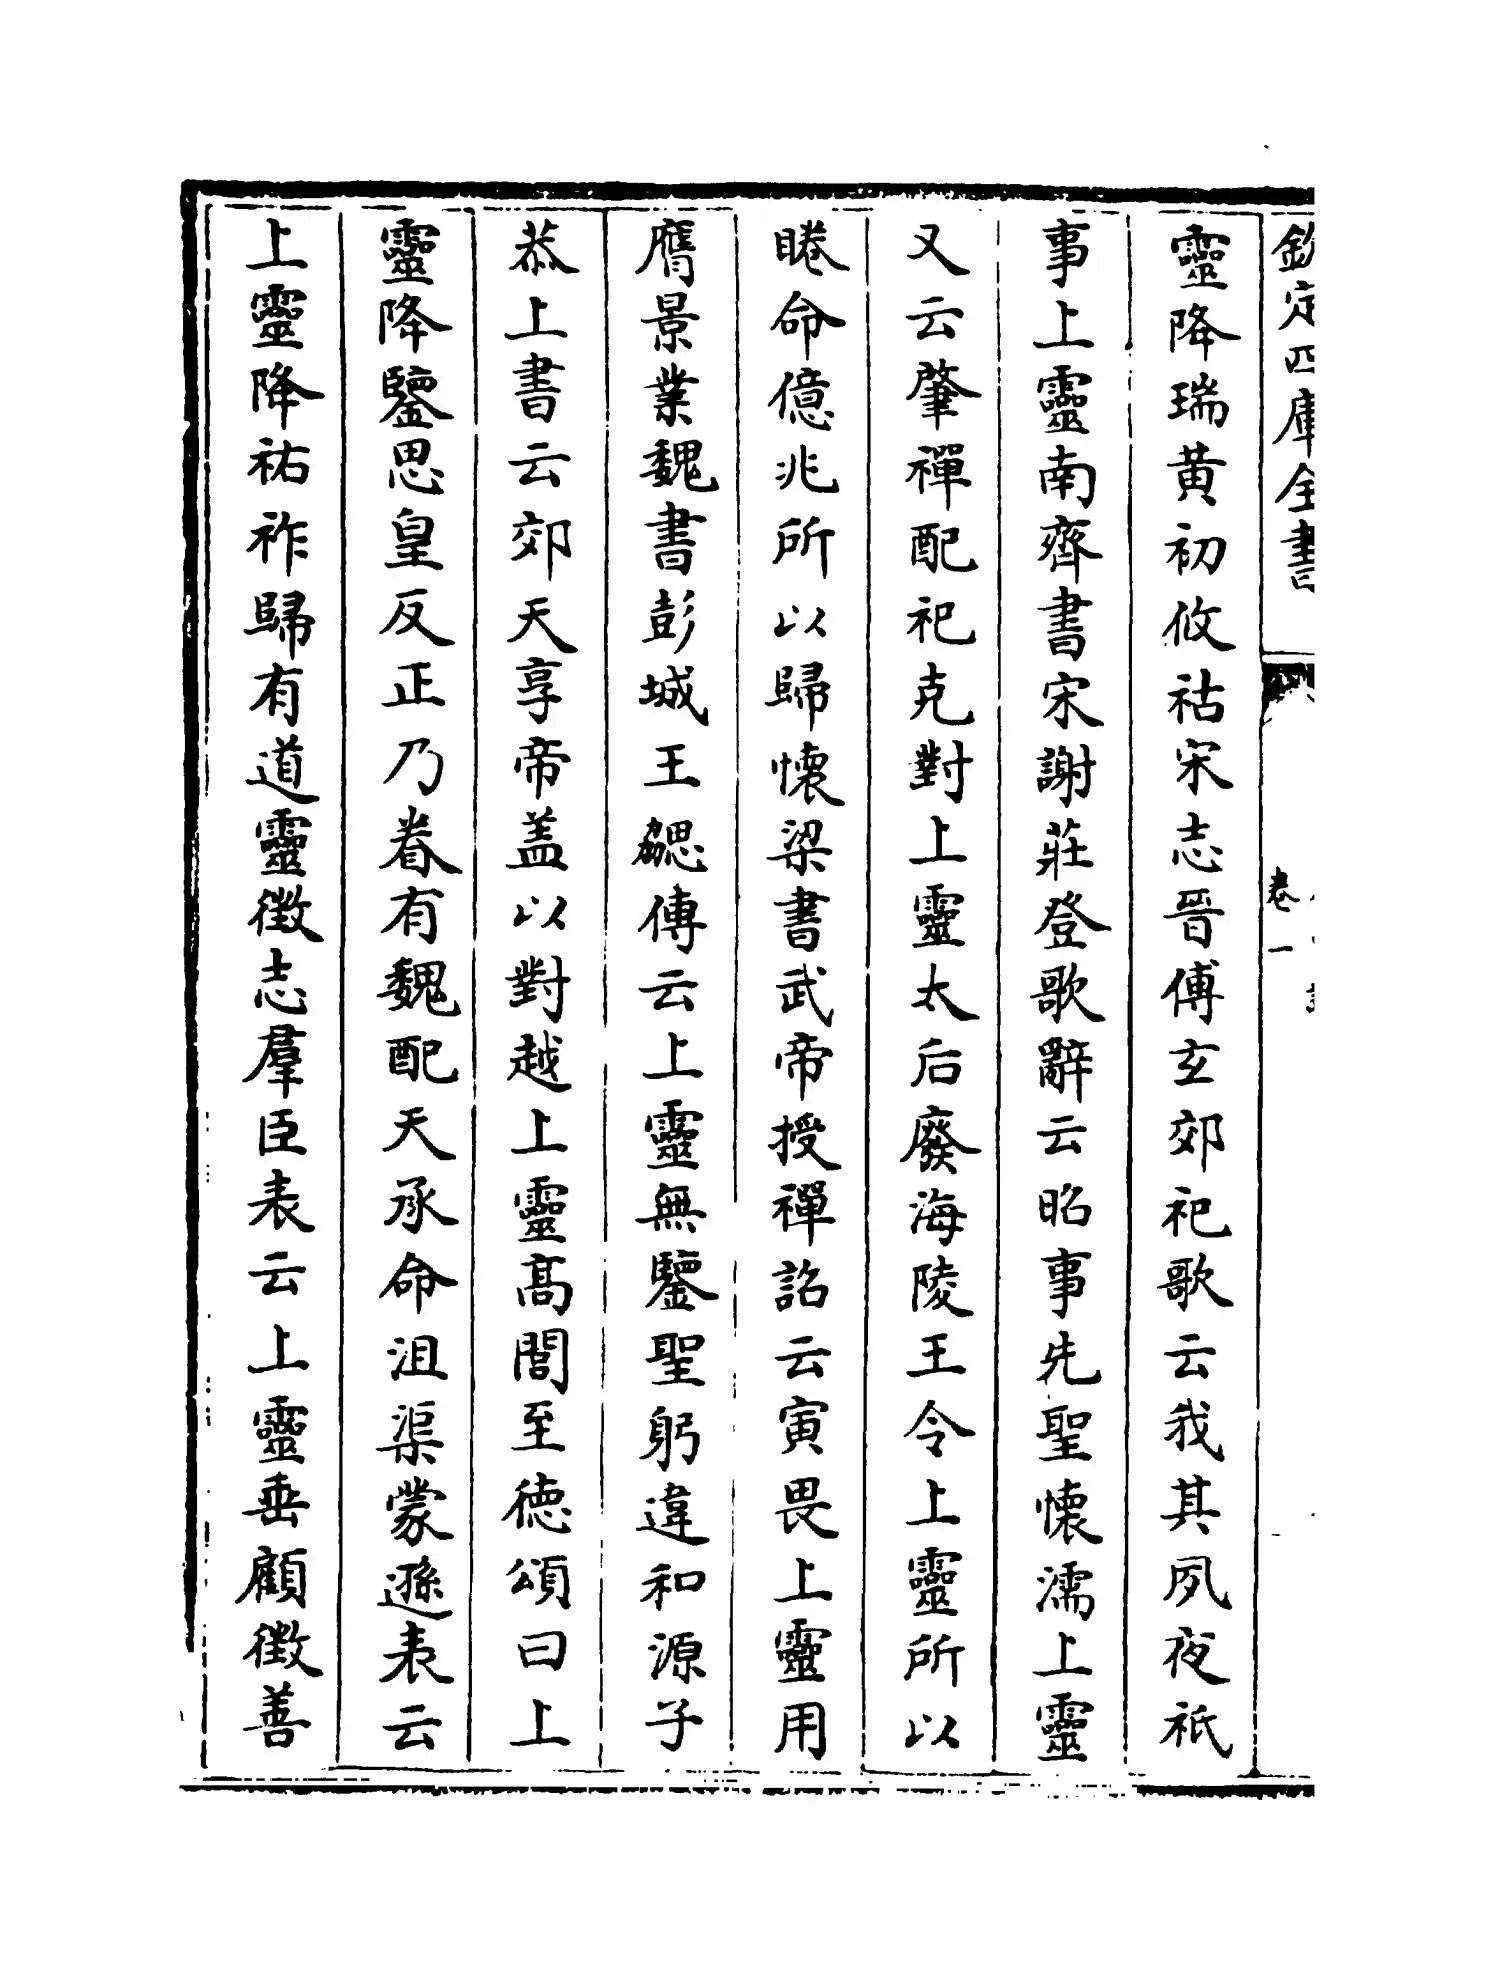 欽定四庫全書
卷一
靈降瑞黄初攸祜宋志晉傅玄郊祀歌云我其夙夜祇
事上靈南齊書宋謝莊登歌辭云昭事先聖懷濡上靈
又云肇禋配祀克對上靈太后廢海陵王令上靈所以
睠命億兆所以歸懷梁書武帝授禪詔云寅畏上靈用
膺景業魏書彭城王勰傳云上靈無鑒聖躬違和源子
恭上書云郊天享帝盖以對越上靈髙閭至徳頌曰上
靈降鑒思皇反正乃眷有魏配天承命沮渠蒙遜表云
上靈降祐祚歸有道靈徵志羣臣表云上靈垂顧徵善